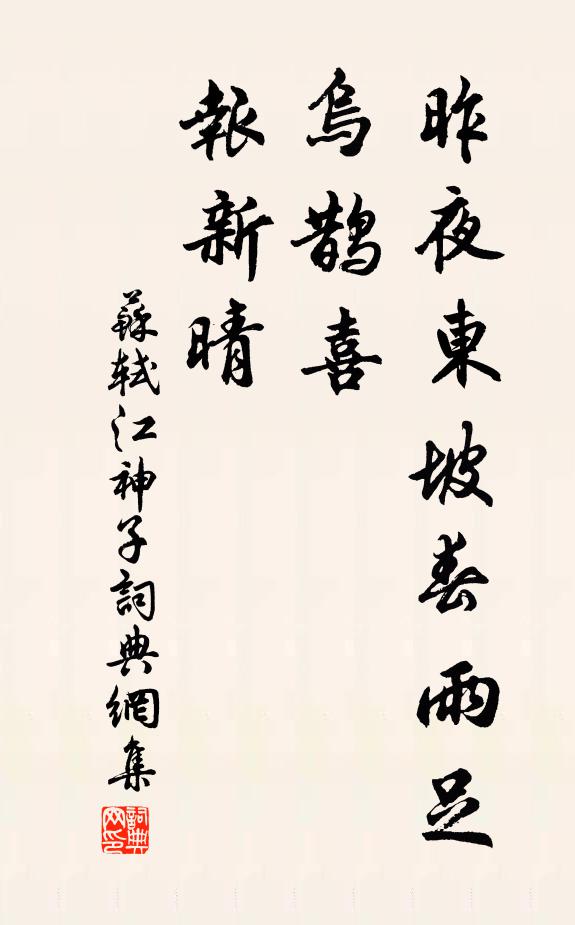 昨夜東坡春雨足
烏鵲喜
報新晴
蘇軾江神子詞典網集
詞典網印